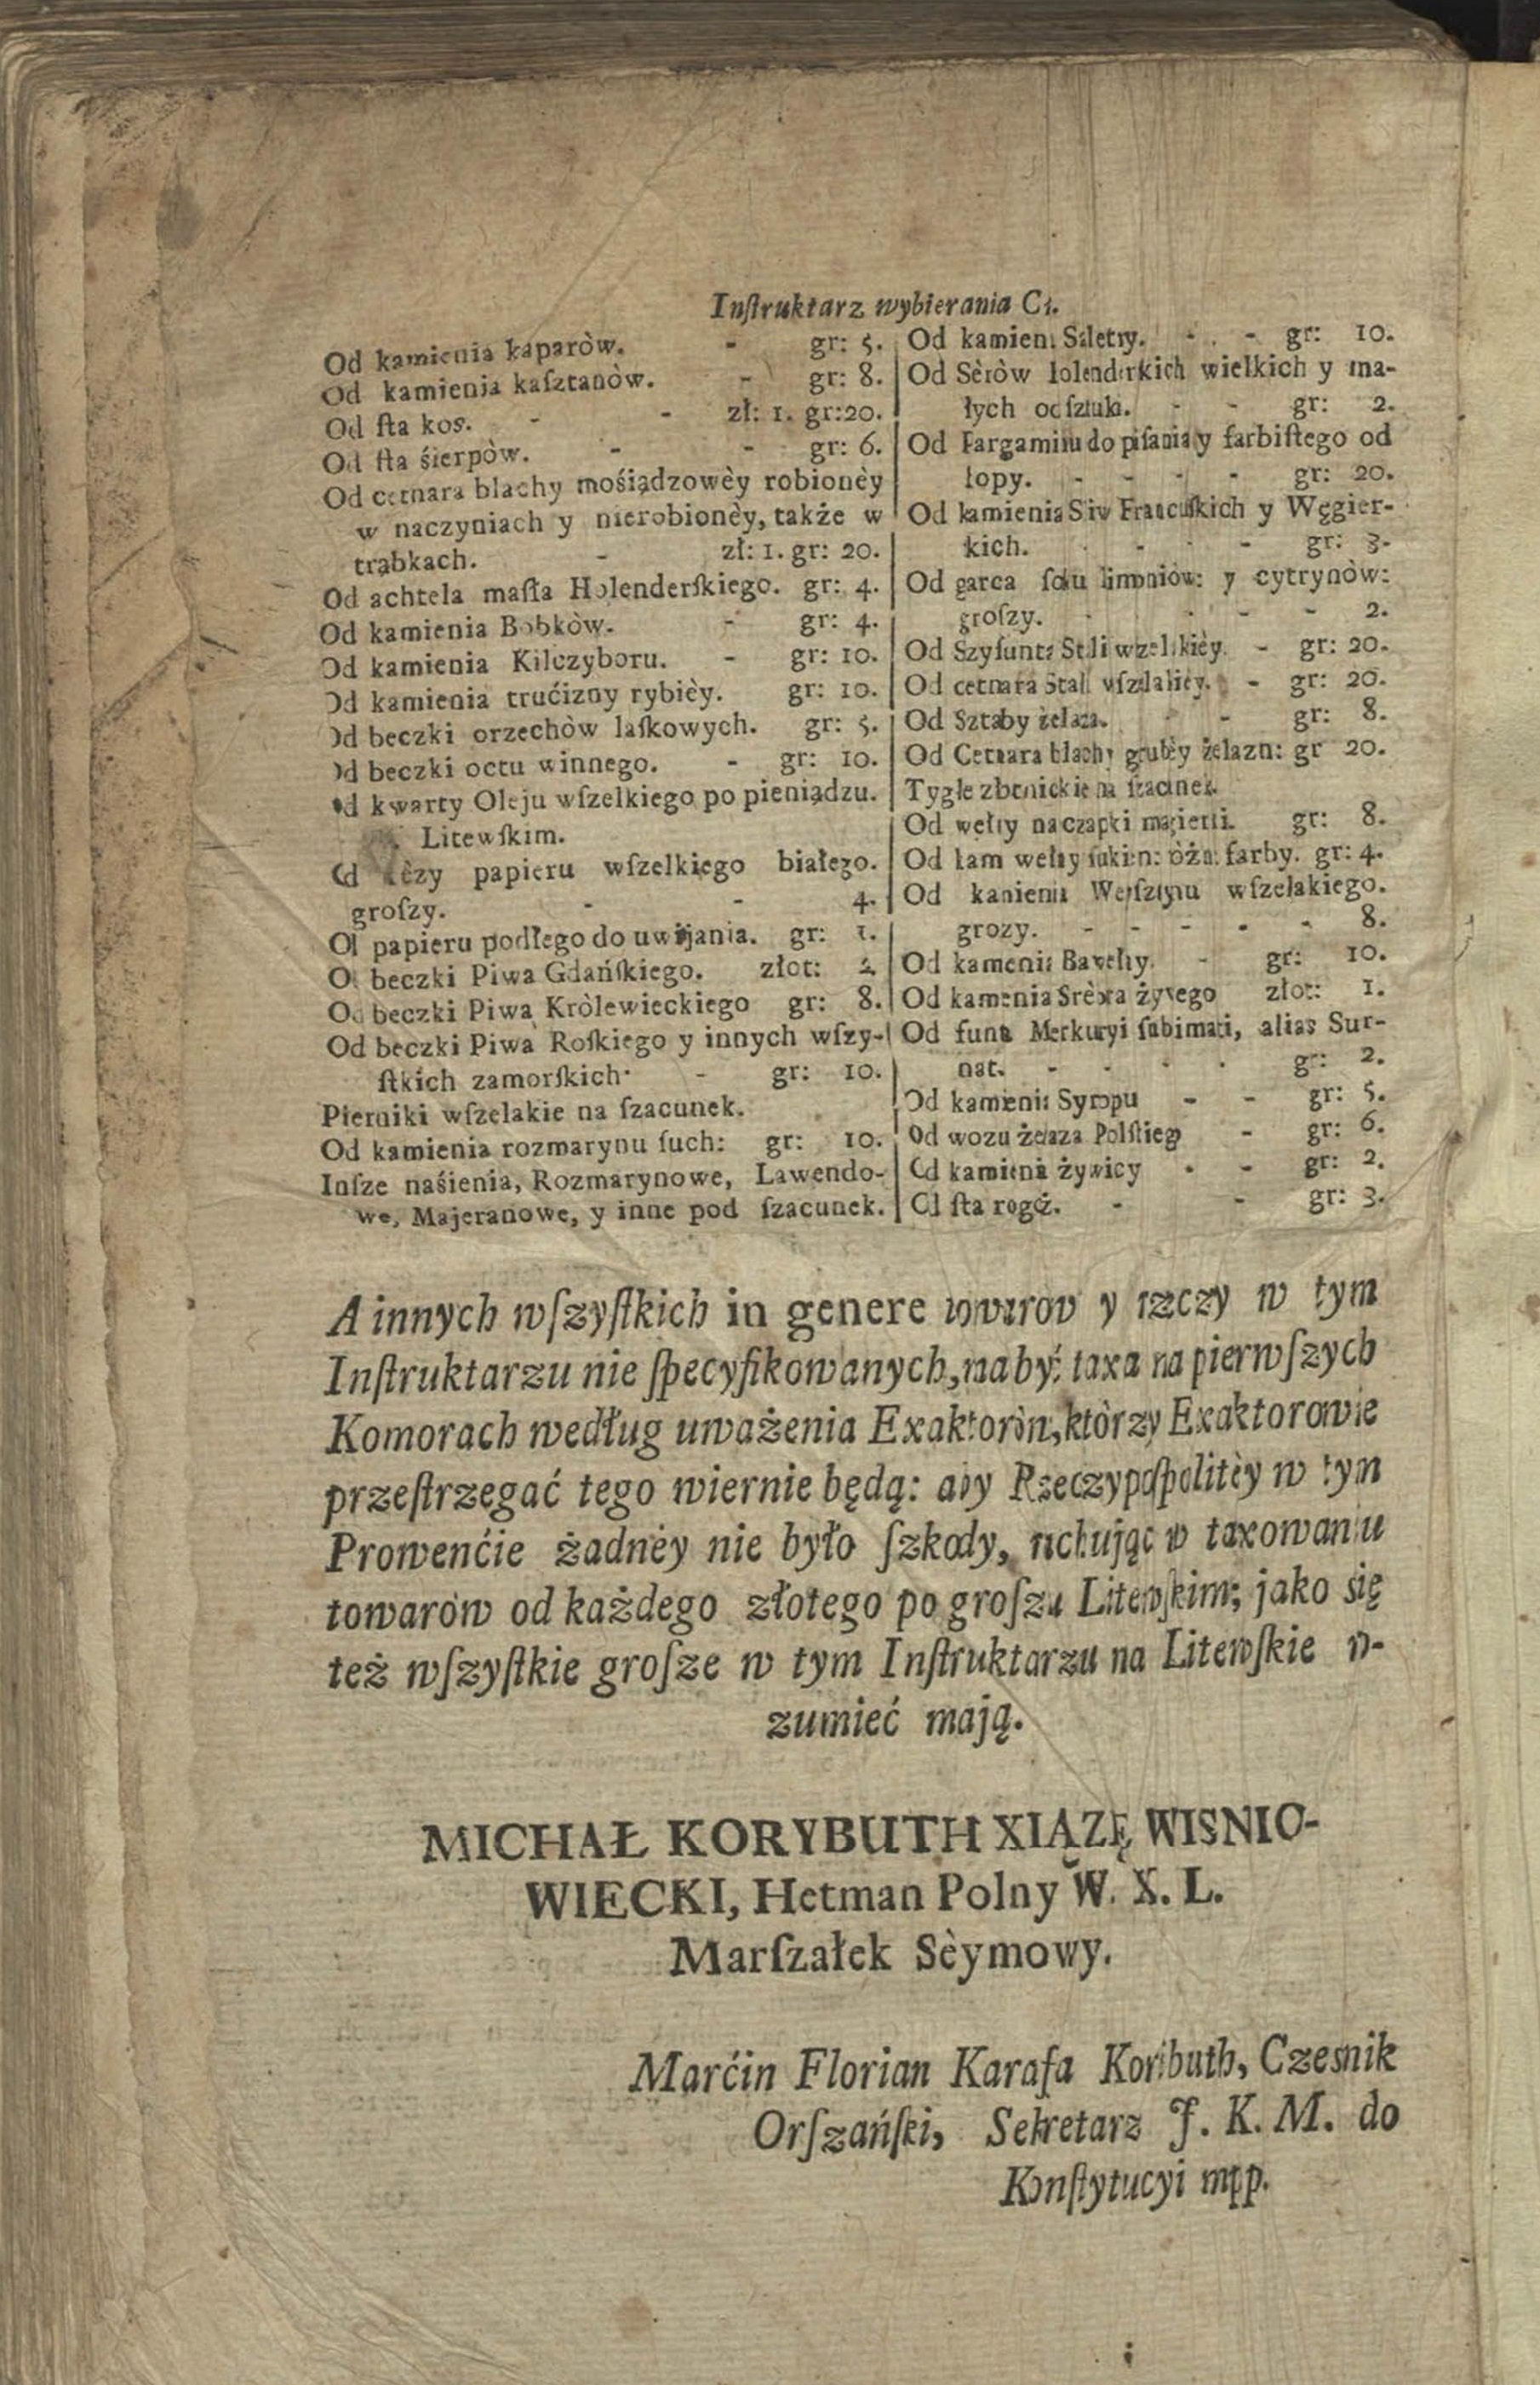 Inſtruktarz wybierania Cł.
Od kamienia kaparòw. - gr: 5.
Od kamienia kaſztanòw. - gr: 8.
Od ſta kos. - - zł: 1. gr: 20.
Od ſta śierpòw. - - gr: 6.
Od cetnara blachy mośiądzowèy robionèy
w naczyniach y nierobionèy, także w
trąbkach. - zł: 1. gr: 20.
Od achtela maſła Holenderſkiego. gr: 4.
Od kamienia Bobkòw. - gr: 4.
Od kamienia Kilczyboru. - gr: 10.
Od kamienia trućizny rybièy. gr: 10.
Od beczki orzechòw laſkowych. gr: 5.
Od beczki octu winnego. - gr: 10.
Od kwarty Oleju wſzelkiego po pieniądzu.
Litewſkim.
Od papieru wſzelkiego białego.
groſzy. - - 4.
Od papieru podłego do uwijania. gr: 1.
Od beczki Piwa Gdańſkiego. złot: 2.
Od beczki Piwa Kròlewieckiego gr: 8.
Od beczki Piwa Roſkiego y innych wſzy-
ſtkich zamorſkich. - gr: 10.
Pierniki wſzelakie na ſzacunek.
Od kamienia rozmarynu ſuch: gr: 10.
Inſze naśienia, Rozmarynowe, Lawendo-
we, Majeranowe, y inne pod ſzacunek.
Od kamien. Saletry. - - gr: 10.
Od Sèròw wielkich y ma-
łych od ſztuki. - - gr: 2.
Od Pargaminu do piſania y farbiſtego od
kopy. - - - - gr: 20.
Od kamienia Sliw Francuſkich y Węgier-
kich. - - - - gr: 3.
Od garca ſoku limoniòw: y cytrynòw:
groſzy. - - - - 2.
Od Szyfunta Stali wſzelkièy. - gr: 20.
Od cetnara Stali - gr: 20.
Od Sztaby żelaza. - - gr: 8.
Od Cetnara blachy grubèy żelazn: gr 20.
Tygle na ſzacunek.
Od wełny na czapki gr: 8.
Od kam wełny farby. gr: 4.
Od kamienia Weyſztynu wſzelakiego.
groſzy. - - - - - 8.
Od kamienia Bawełny. - gr: 10.
Od kamienia Srèbra żywego złot: 1.
Od funta Merkuryi ſublimati, alias Sur-
nat. - - - - gr: 2.
Od kamienia Syropu - - gr: 5.
Od wozu żelaza Polſkiego - gr: 6.
Od kamienia żywicy - - gr: 2.
Od ſta rogóż. - - gr: 3.
A innych wſzyſtkich in genere towarow y rzeczy w tym
Inſtruktarzu nie ſpecyfikowanych, ma być taxa na pierwſzych
Komorach według uważenia Exaktoròw, ktòrzy Exaktorowie
przeſtrzegać tego wiernie będą: aby Rzeczypoſpolitèy w tym
Prowenćie żadnèy nie było ſzkody, rachując w taxowaniu
towaròw od każdego złotego po groſzu Litewſkim; jako się
też wſzyſtkie groſze w tym Inſtruktarzu na Litewſkie ro-
zumieć mają.
MICHAŁ KORYBUTH XIĄZĘ WISNIO-
WIECKI, Hetman Polny W. X. L.
Marſzałek Sèymowy.
Marćin Florian Karaſa Koributh, Czesnik
Orſzańſki, Sekretarz J. K. M. do
Konſtytucyi mpp.